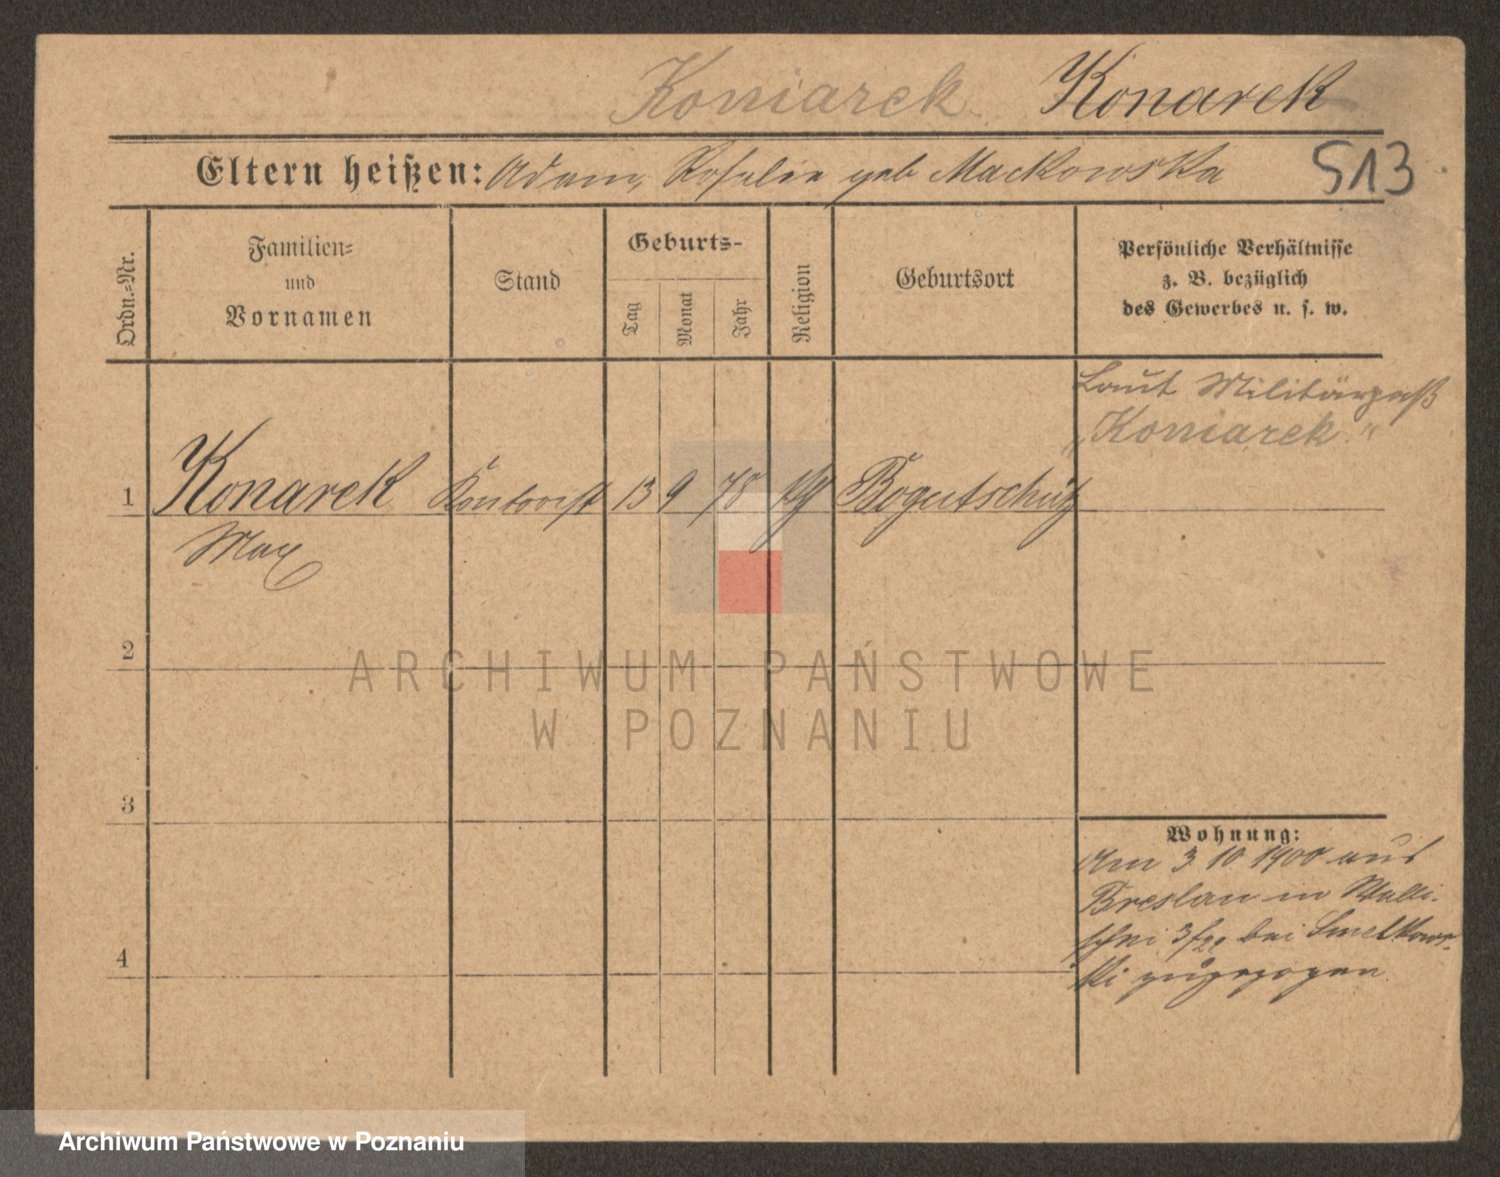 Koniarek Konarek
Eltern heißen: Adam, Rosalie geb Mackowska
513
Ordn.-Nr.
Familien-
und
Vornamen
Stand
Geburts-
Tag
Monat
Jahr
Religion
Geburtsort
Persönliche Verhältnisse
z. B. bezüglich
des Gewerbes u. s. w.
Laut Militärpaß
„Koniarek“
1 Konarek Kontorist 13 9 78 Bogutschütz
Max
2
ARCHIWUM PAŃSTWOWE
W POZNANIU
3
Wohnung:
Am 3 10 1900 aus
Breslau in Walli-
schei bei Smelkows-
ki zugezogen
4
Archiwum Państwowe w Poznaniu